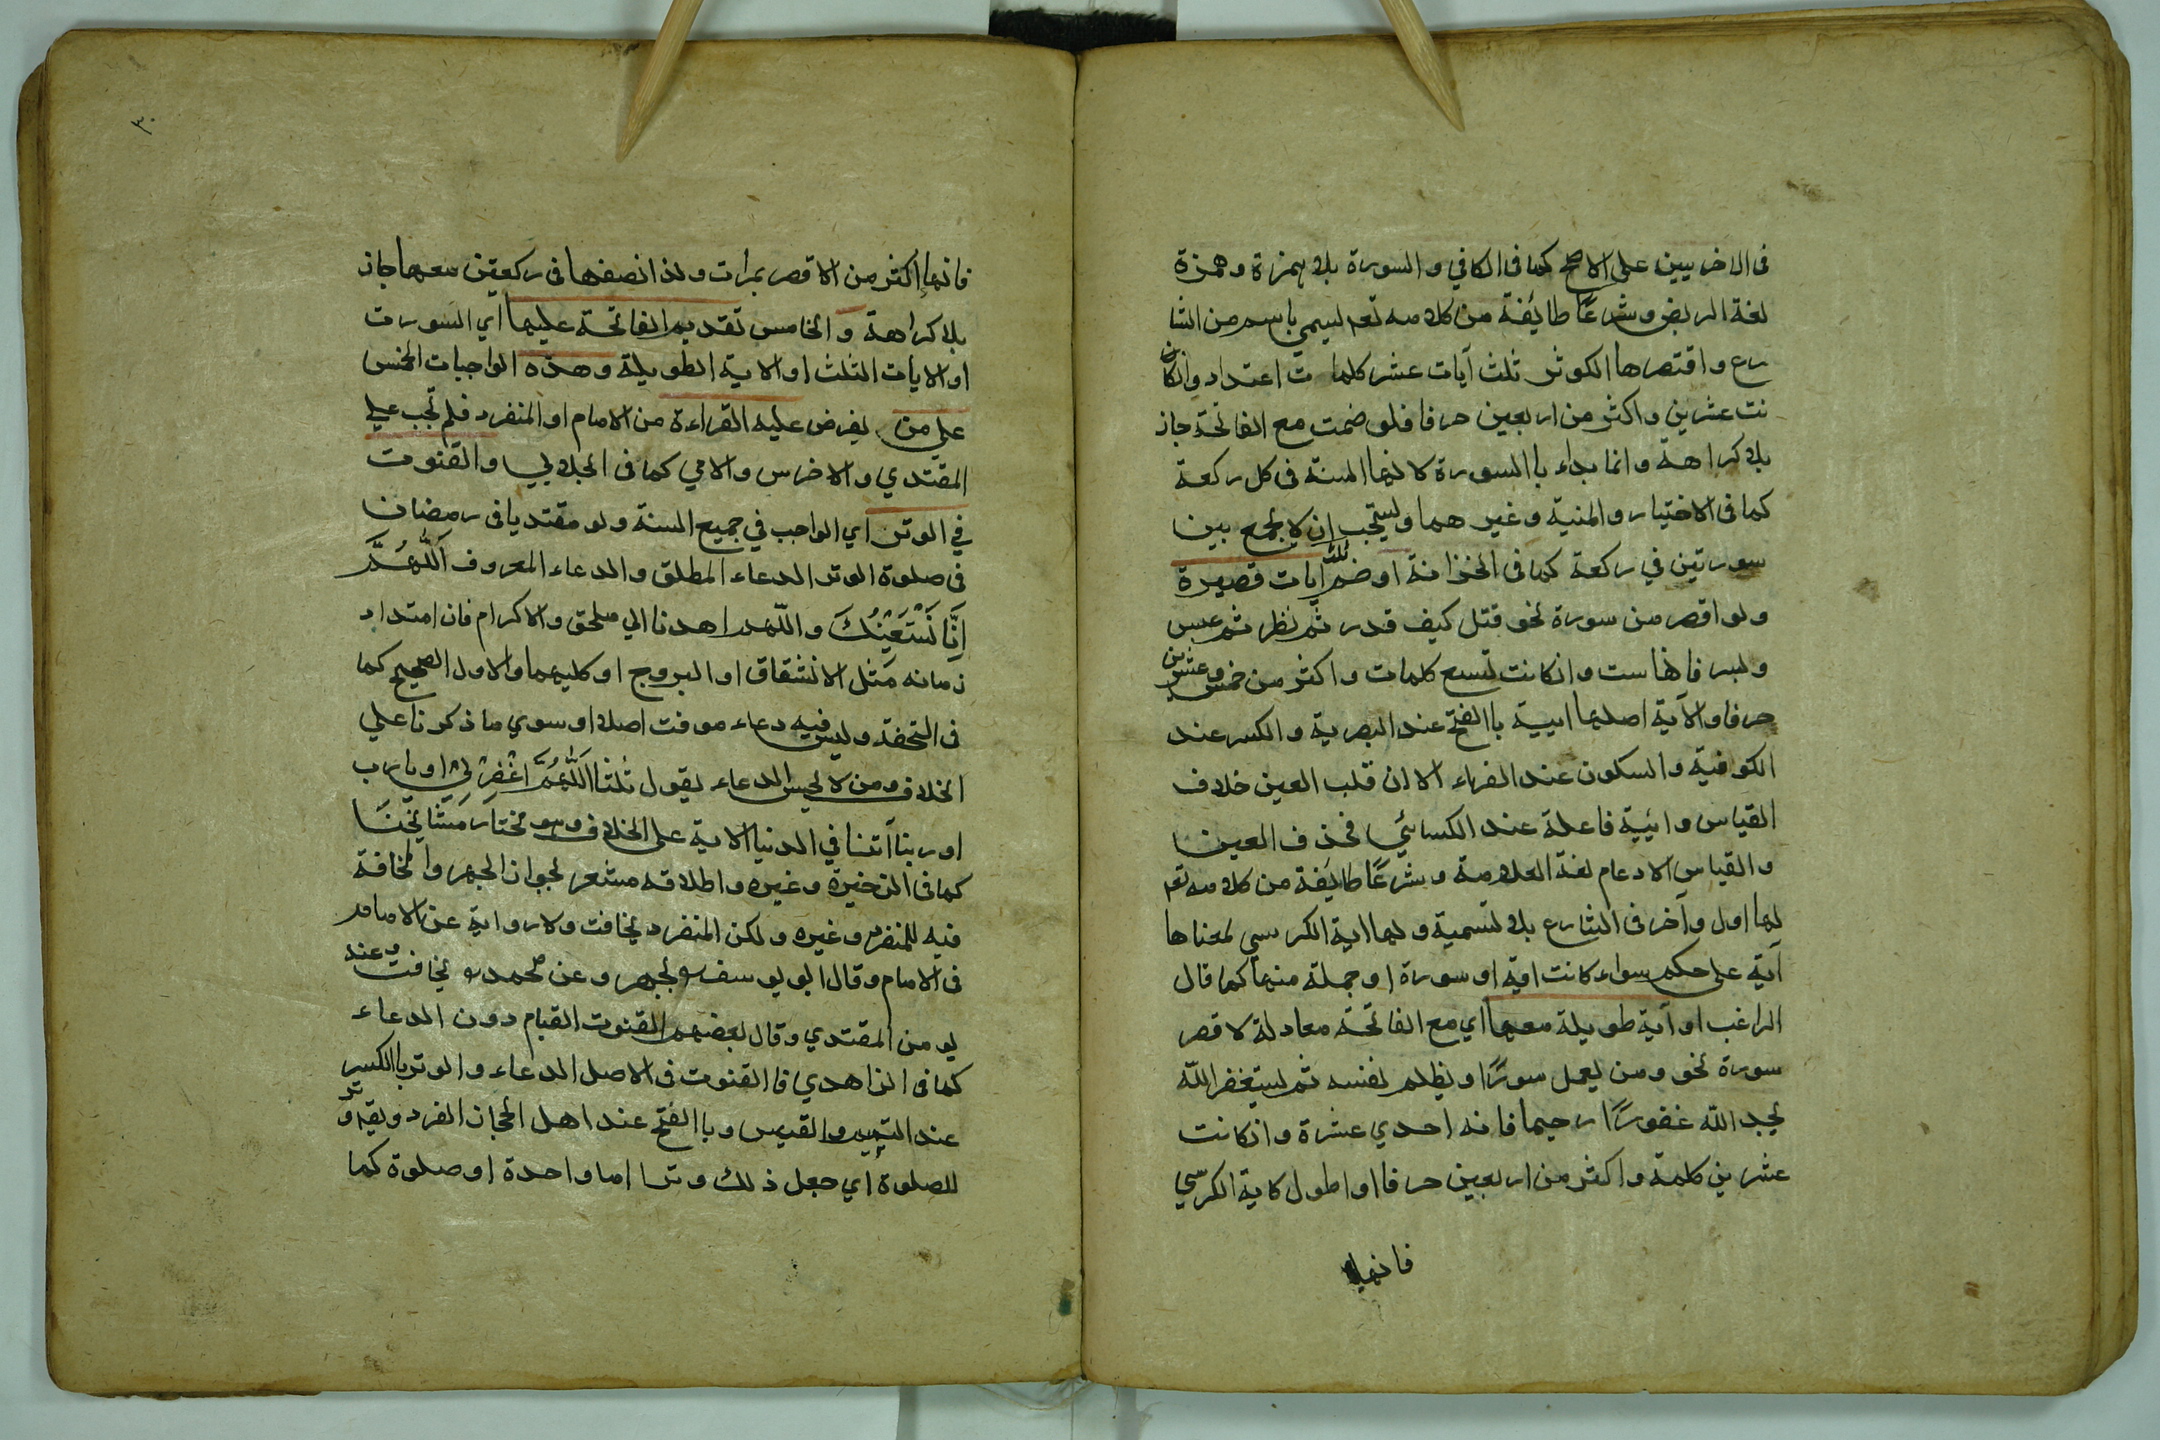 فى الاخريين على الاصح كما فى الكافي والسورة بلا همزة وهمزة
لغة الربض وشرعًا طائفة من كلامه تعم ليسمي باسم من الشا
رع واقتصرها الكوثر ثلث آيات عشر كلمات اعتداد وانكان
نت عشرين واكثر من اربعين حرفا فلو ضمت مع الفاتحة جاز
بلا كراهة وانما بداء باالسورة كانها السنة فى كل ركعة
كما فى الاختيار والمنية وغيرهما ويستحب ان لا يجمع بين
سورتين في ركعة كما فى الخزانة او ضم ثلث آيات قصيرة
ولو اقصر من سورة نحو قتل كيف قدر ثم نظر ثم عبس
وبسر فانها ست وانكانت تسع كلمات واكثر من خمس وعشرين
حرفا والآية اصلها اييية باالفتح عند البصرية والكسر عند
الكوفية والسكون عند الفراء الا ان قلب العين خلاف
القياس وائيية فاعلة عند الكسائي فحذف العين
والقياس الادعام لغة العلامة وشرعًا طايفة من كلامه تعم
لها اول وآخر فى الشارع بلا تسمية ولها اية الكرسي لمعناها
آية على حكم سواء كانت اية او سورة او جملة منها كما قال
الراغب او آية طويلة معها اي مع الفاتحة معادلة لا قصر
سورة نحو ومن يعمل سورًا او يظلم نفسه ثم يستغفر الله
يجد الله غفورًا رحيما فانه احدي عشرة وانكانت
عشرين كلمة واكثر من اربعين حرفا او اطول كاية الكرسي
فانها
٣٠
فانها اكثر من الاقصر بمرات ولذا نصفها فى ركعتين معها جاز
بلا كراهة و الخامس تقديم الفاتحة عليها اي السورت
او الايات الثلث او الاية الطويلة وهذه الواجبات الخمس
على من يفرض عليه القراءة من الامام او المنفرد فلم تجب على
المقتدي والاخرس والامي كما فى الجلابي والقنوت
في الوتر اي الواجب في جميع السنة ولو مقتديا فى رمضان
فى صلوة الوتر الدعاء المطلق والدعاء المعروف اَللّٰهُمَّ
اِنَّا نَسْتَعِيْنُكَ واللّهم اهدنا الي ملحق والاكرام فان امتداد
زمانه مثل الانشقاق او البروج او كليهما والاول الصحيح كما
فى التحفة وليس فيه دعاء موقت اصلا او سوي ما ذكرنا علي
الخلاف ومن لا يحسن الدعاء يقول ثلثا اَللّٰهُمَّ اغْفِرْ لِيْ او يا رب
او ربنا آتنا في الدنيا الاية على الخلاف وهو مختار مَشَايِخِنَا
كما فى الذخيرة وغيره واطلاقه مشعر لجواز الجهر والمخافة
فيه للمنفرد وغيره ولكن المنفرد يخافت ولا رواية عن الامام
فى الامام وقال ابو يوسف يجهر وعن محمد يخافت وعند
يو من المقتدي وقال بعضهم القنوت القيام دون الدعاء
كما فى الزاهدي فا القنوت فى الاصل الدعاء والوتر باالكسر
عند التميم والقيس وباالفتح عند اهل الحجاز الفرد ويقم وتر
للصلوة اي جعل ذلك وترا اما واحدة او صلوة كما